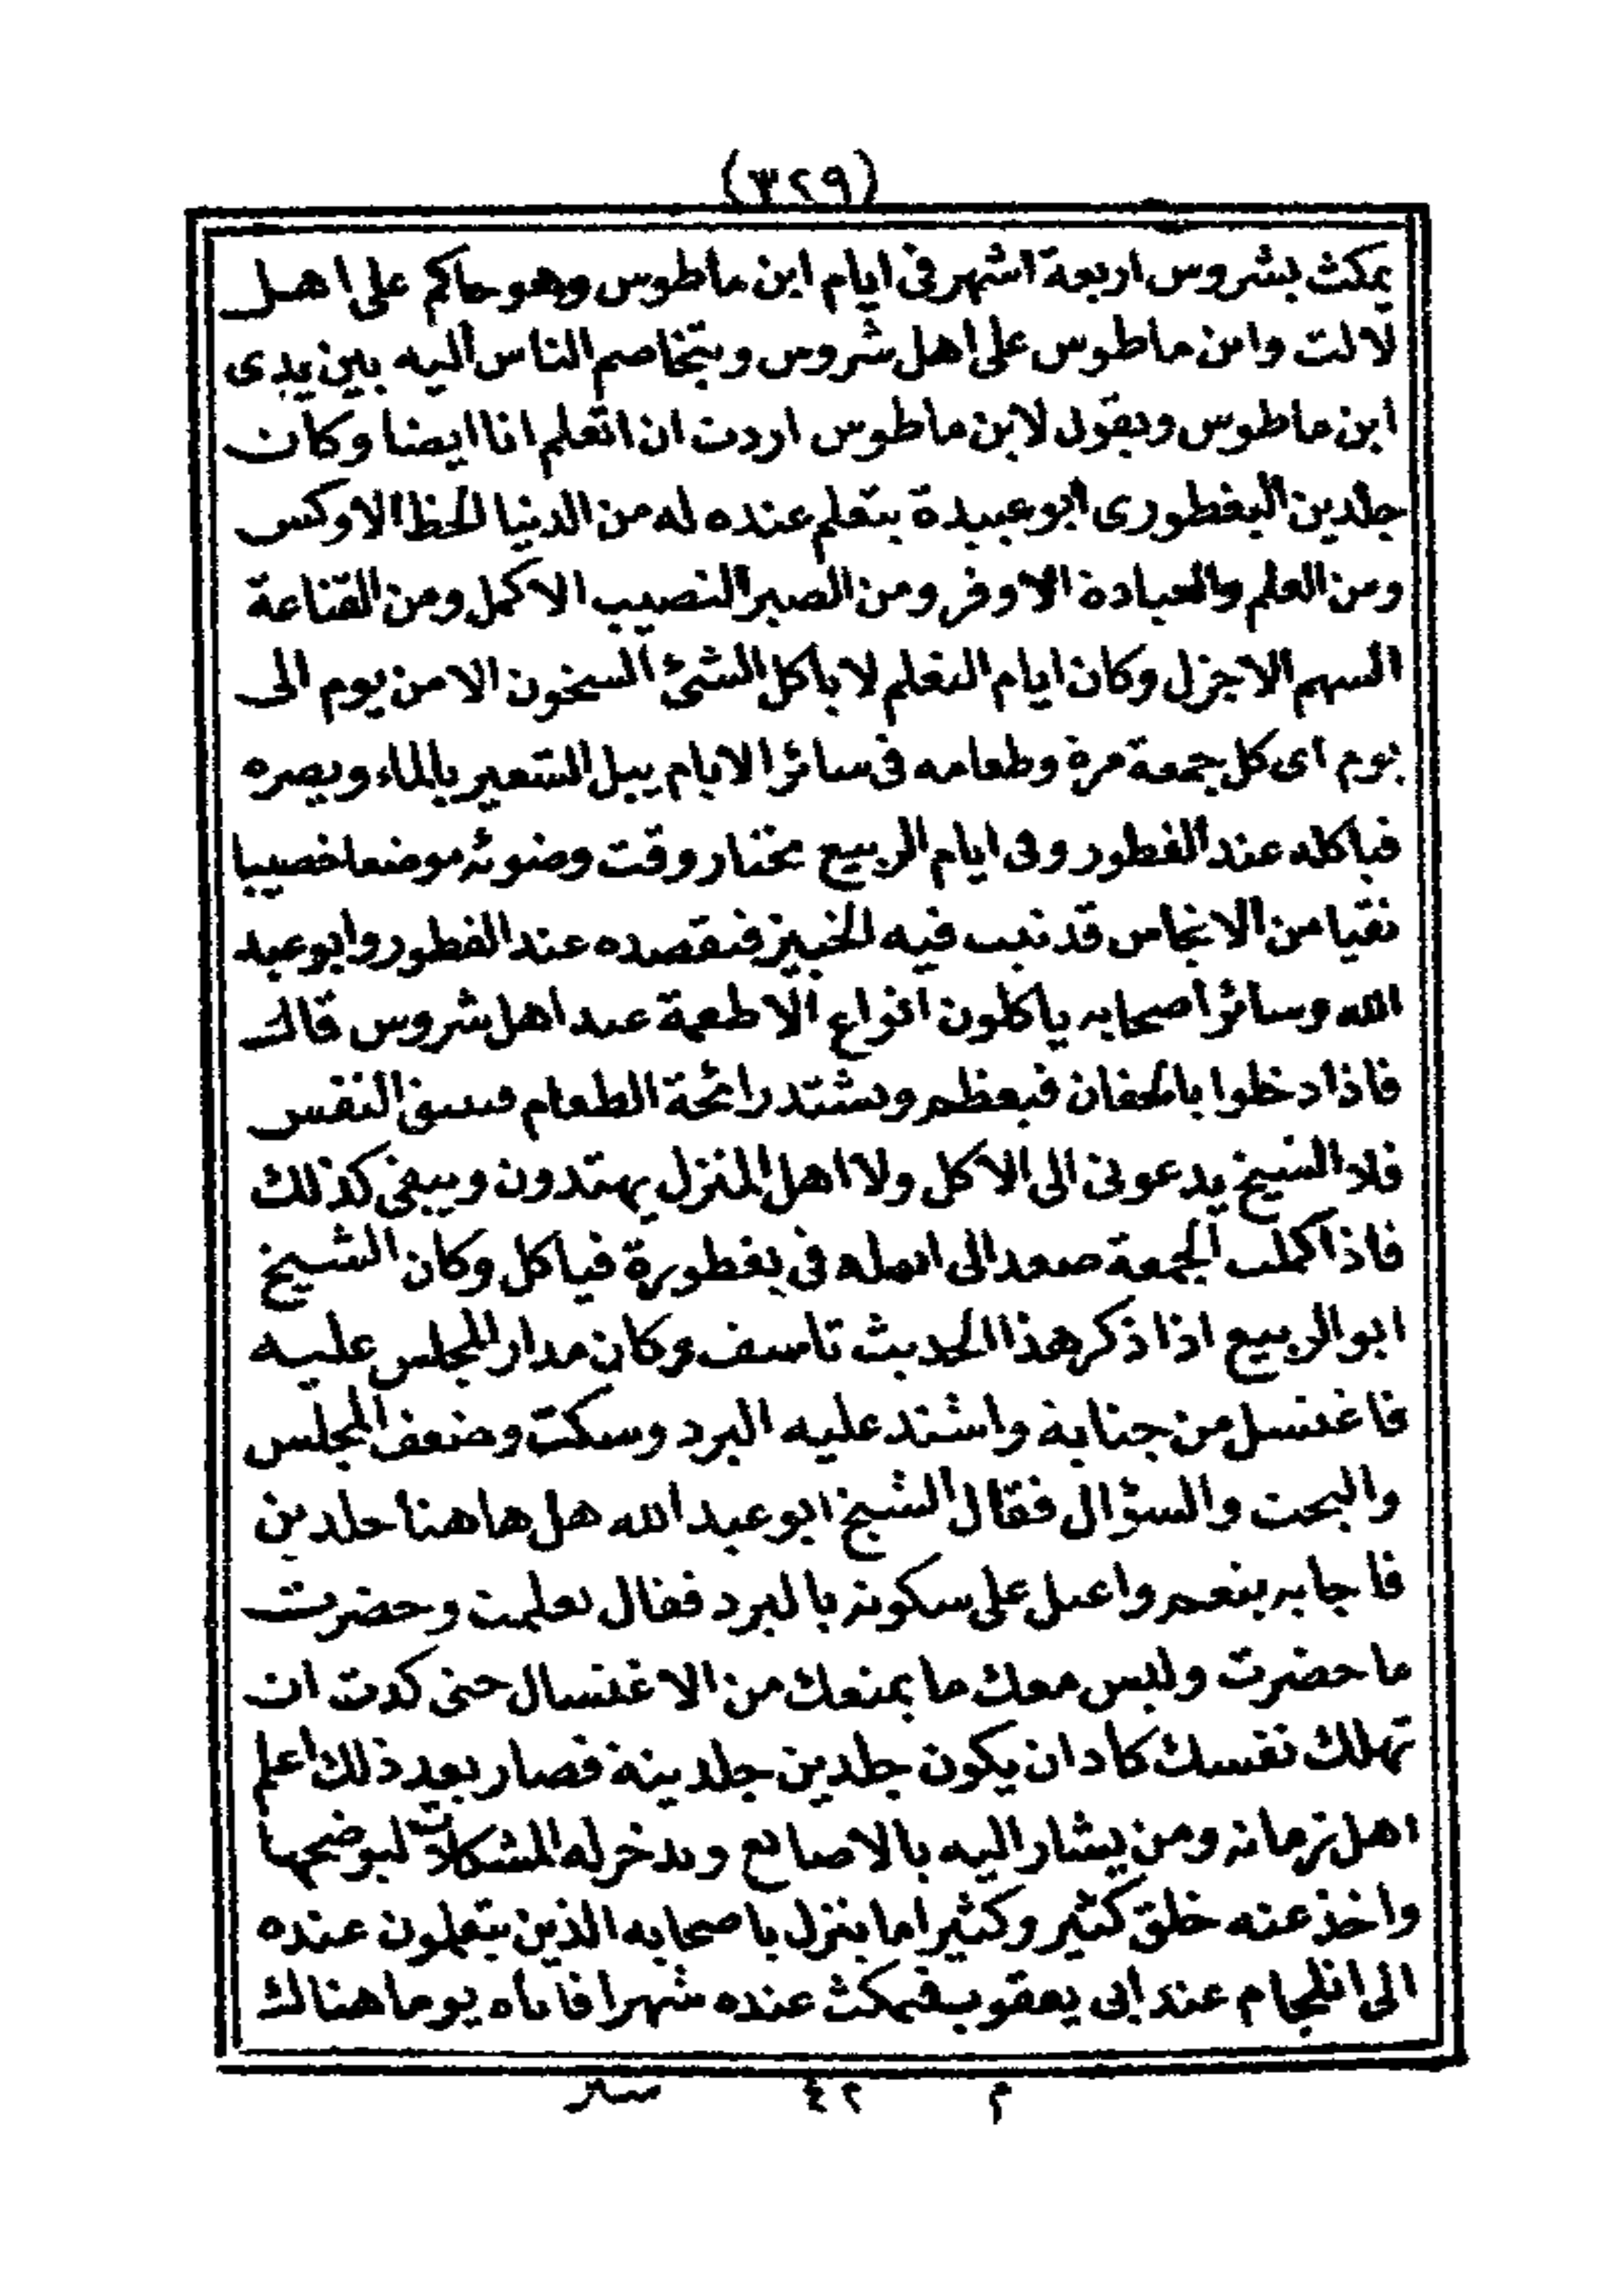 (٣٢٩)
يمكث بشروس اربعة اشهر فى ايام ابن ماطوس وهو حاكم على اهل
لالت وابن ماطوس على اهل شروس ويتخاصم الناس اليه بين يدى
ابن ماطوس ويقول لابن ماطوس اردت ان اتعلم انا ايضا وكان
جلدين اليغطورى ابو عبيدة يتعلم عنده له من الدنيا الحظ الاوكس
ومن العلم والعبادة الاوفر ومن الصبر النصيب الاكمل ومن القناعة
السهم الاجزل وكان ايام التعلم لا ياكل الشئ السخون الا من يوم الى
يوم اى كل جمعة مرة وطعامه فى سائر الايام يبل الشعير بالماء ويصره
فياكله عند الفطور وفى ايام الربيع يختار وقت وضوئه موضعا خصيبا
نقيا من الانجاس قد نبت فيه الخبيز فيقصده عند الفطور وابو عبد
الله وسائر اصحابه ياكلون انواع الاطعمة عند اهل شروس قال
فاذا دخلوا بالجفان فيعظم ويشتد رائحة الطعام النفس
فلا الشيخ يدعونى الى الاكل ولا اهل المنزل يهتدون ويبقى كذلك
فاذا كملت الجمعة صعد الى اهله فى يغطورة فياكل وكان الشيخ
ابو الربيع اذا ذكر هذا الحديث تاسف وكان مدار المجلس عليه
فاغتسل من جنابة واشتد عليه البرد وسكت وضعف المجلس
والبحث والسؤال فقال الشيخ ابو عبد الله هل هاهنا جلدين
فاجابه بنعم واعتل على سكوته بالبرد فقال تعلمت وحضرت
ما حضرت وليس معك ما يمنعك من الاغتسال حتى كدت ان
تهلك نفسك كاد ان يكون جلدين جلدينة فصار بعد ذلك اعلم
اهل زمانه ومن يشار اليه بالاصابع ويدخر له المشكلات ليوضحها
واخذ عنه خلق كثير وكثيرا ما ينزل باصحابه الذين يتعلمون عنده
الى انلجام عند ابى يعقوب فيمكث عنده شهرا فاتاه يوما هناك
م ٤٢ سير